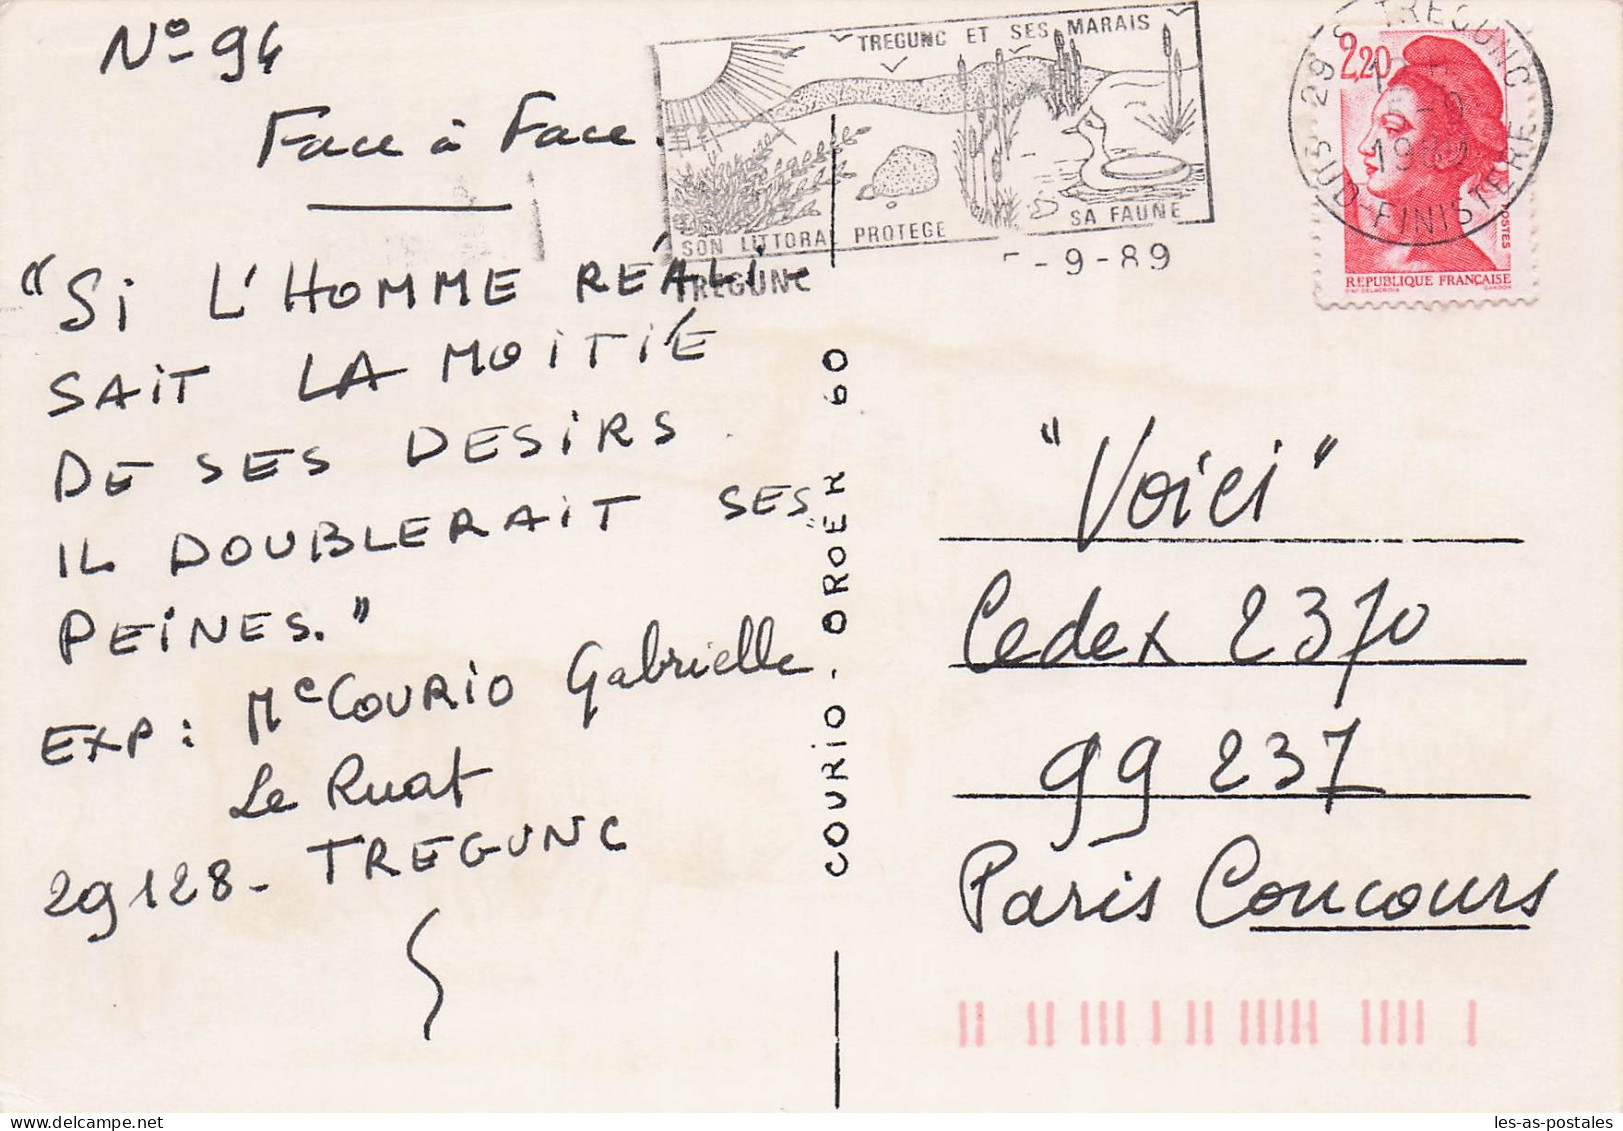 N° 94
Face à Face.
"Si L'HOMME RÉALI-
SAIT LA MOITIÉ
DE SES DESIRS
IL DOUBLERAIT SES
PEINES."
EXP: Mc COURIO Gabrielle
Le Ruat
29128 - TREGUNC
TREGUNC ET SES MARAIS
SON LITTORAL PROTEGE SA FAUNE
TREGUNC
-9-89
29 S TREGUNC
-9
SUD-FINISTERE
2,20
POSTES
REPUBLIQUE FRANÇAISE
D'AP DELACROIX GANDON
COURIO. OROËR 60
"Voici"
Cedex 2370
99 237
Paris Concours
les-as-postales